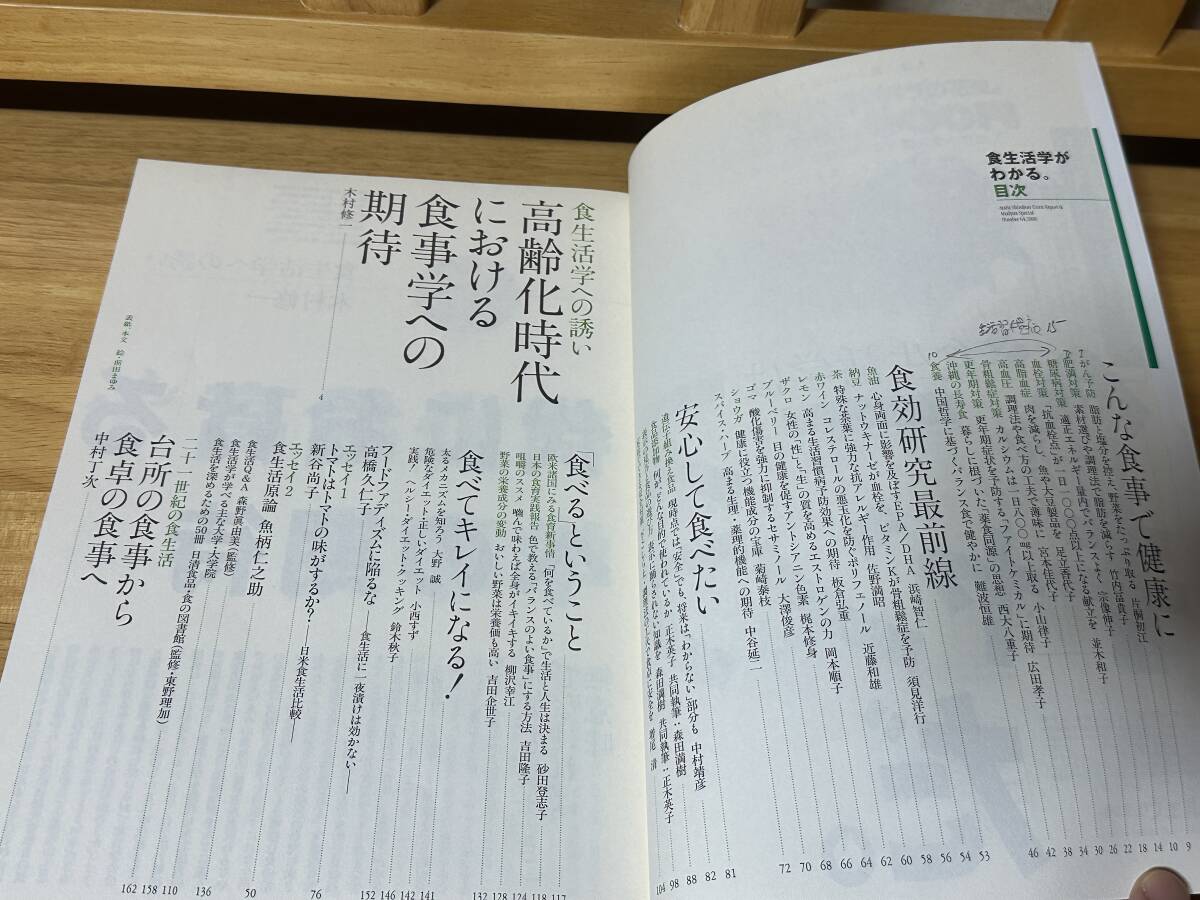 食生活学が
わかる。
目次
生活習慣病 15
こんな食事で健康に
9
がん予防 脂肪と塩分を控え、野菜をたっぷり取る 片桐初江
10
肥満対策 素材選びや調理法で脂肪を減らす 竹内冨貴子
14
糖尿病対策 適正エネルギー量内でバランスよく 宗像伸子
18
血栓対策 「抗血栓点」が一日一〇〇〇点以上になる献立を 並木和子
22
高脂血症 肉を減らし、魚や大豆製品を 足立香代子
26
高血圧 調理法や食べ方の工夫で薄味に 宮本佳代子
30
骨粗鬆症対策 カルシウムは一日八〇〇㎎以上取る 小山律子
34
更年期対策 更年期症状を予防する「ファイトケミカル」に期待 広田孝子
38
沖縄の長寿食 暮らしに根づいた「薬食同源」の思想 西大八重子
42
食養 中国哲学に基づくバランス食で健やかに 難波恒雄
46
食効研究最前線
53
魚油 心身両面に影響を及ぼすEPA/DHA 浜崎智仁
54
納豆 ナットウキナーゼが血栓を、ビタミンKが骨粗鬆症を予防 須見洋行
56
茶 特殊な茶葉に強力な抗アレルギー作用 佐野満昭
58
赤ワイン コレステロールの悪玉化を防ぐポリフェノール 近藤和雄
60
レモン 高まる生活習慣病予防効果への期待 板倉弘重
62
ザクロ 女性の「性」と「生」の質を高めるエストロゲンの力 岡本順子
64
ブルーベリー 目の健康を促すアントシアニン色素 梶本修身
66
ゴマ 酸化傷害を強力に抑制するセサミノール 大澤俊彦
68
ショウガ 健康に役立つ機能成分の宝庫 菊﨑泰枝
70
スパイス・ハーブ 高まる生理・薬理的機能への期待 中谷延二
72
安心して食べたい
81
遺伝子組み換え食品 現時点では「安全」でも、将来は「わからない」部分も 中村靖彦
82
食品添加物 何が、どんな目的で使われているか 正木英子 共同執筆:森田満樹
88
森田満樹 共同執筆:正木英子
98
増尾 清
104
食生活学への誘い
高齢化時代
における
食事学への
期待
木村修一
4
表紙・本文 絵・前田まゆみ
「食べる」ということ
117
欧米諸国にみる食育新事情 「何を食べているか」で生活と人生は決まる 砂田登志子
118
日本の食育実践報告 色で教える「バランスのよい食事」にする方法 吉田隆子
124
咀嚼のススメ 噛んで味わえば全身がイキイキする 柳沢幸江
128
野菜の栄養成分の変動 おいしい野菜は栄養価も高い 吉田企世子
132
食べてキレイになる!
141
太るメカニズムを知ろう 大野 誠
142
危険なダイエット・正しいダイエット 小西すず
146
実践! ヘルシー・ダイエット・クッキング 鈴木秋子
152
フードファディズムに陥るな
高橋久仁子 ―食生活に一夜漬けは効かない―
エッセイ1
トマトはトマトの味がするか?
新谷尚子 ―日米食生活比較―
76
エッセイ2
食生活原論 魚柄仁之助
50
食生活Q&A 森野眞由美(監修)
136
食生活学が学べる主な大学・大学院
食生活を深めるための50冊 日清食品・食の図書館(監修・東野理加)
二十一世紀の食生活
台所の食事から
食卓の食事へ
中村丁次
110
158
162